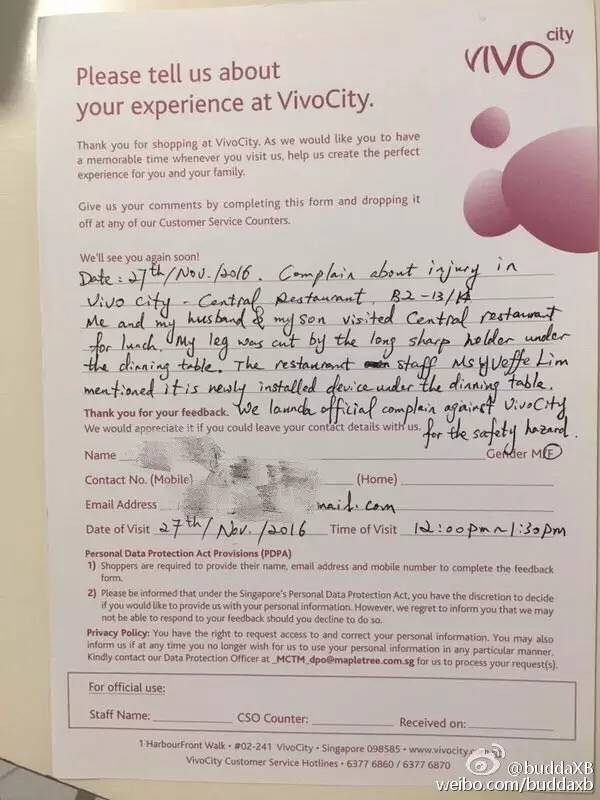 VIVO city
Please tell us about
your experience at VivoCity.
Thank you for shopping at VivoCity. As we would like you to have
a memorable time whenever you visit us, help us create the perfect
experience for you and your family.
Give us your comments by completing this form and dropping it
off at any of our Customer Service Counters.
We'll see you again soon!
Date : 27th/Nov./2016. Complain about injury in
Vivo city - Central Restaurant, B2-13/14
Me and my husband & my son visited Central restaurant
for lunch. My leg was cut by the long sharp holder under
the dinning table. The restaurant staff Ms Yveffe Lim
mentioned it is newly installed device under the dinning table.
Thank you for your feedback. We launda official complain against VivoCity
We would appreciate it if you could leave your contact details with us. for the safety hazard.
Name Gender M/F
Contact No. (Mobile) (Home)
Email Address mail.com
Date of Visit 27th/Nov./2016 Time of Visit 12:00pm~1:30pm
Personal Data Protection Act Provisions (PDPA)
1) Shoppers are required to provide their name, email address and mobile number to complete the feedback
form.
2) Please be informed that under the Singapore's Personal Data Protection Act, you have the discretion to decide
if you would like to provide us with your personal information. However, we regret to inform you that we may
not be able to respond to your feedback should you decline to do so.
Privacy Policy: You have the right to request access to and correct your personal information. You may also
inform us if at any time you no longer wish for us to use your personal information in any particular manner.
Kindly contact our Data Protection Officer at _MCTM_dpo@mapletree.com.sg for us to process your request(s).
For official use:
Staff Name: CSO Counter: Received on:
1 HarbourFront Walk • #02-241 VivoCity • Singapore 098585 • www.vivocity.com.sg
VivoCity Customer Service Hotlines • 6377 6860 / 6377 6870
@buddaXB
weibo.com/buddaxb